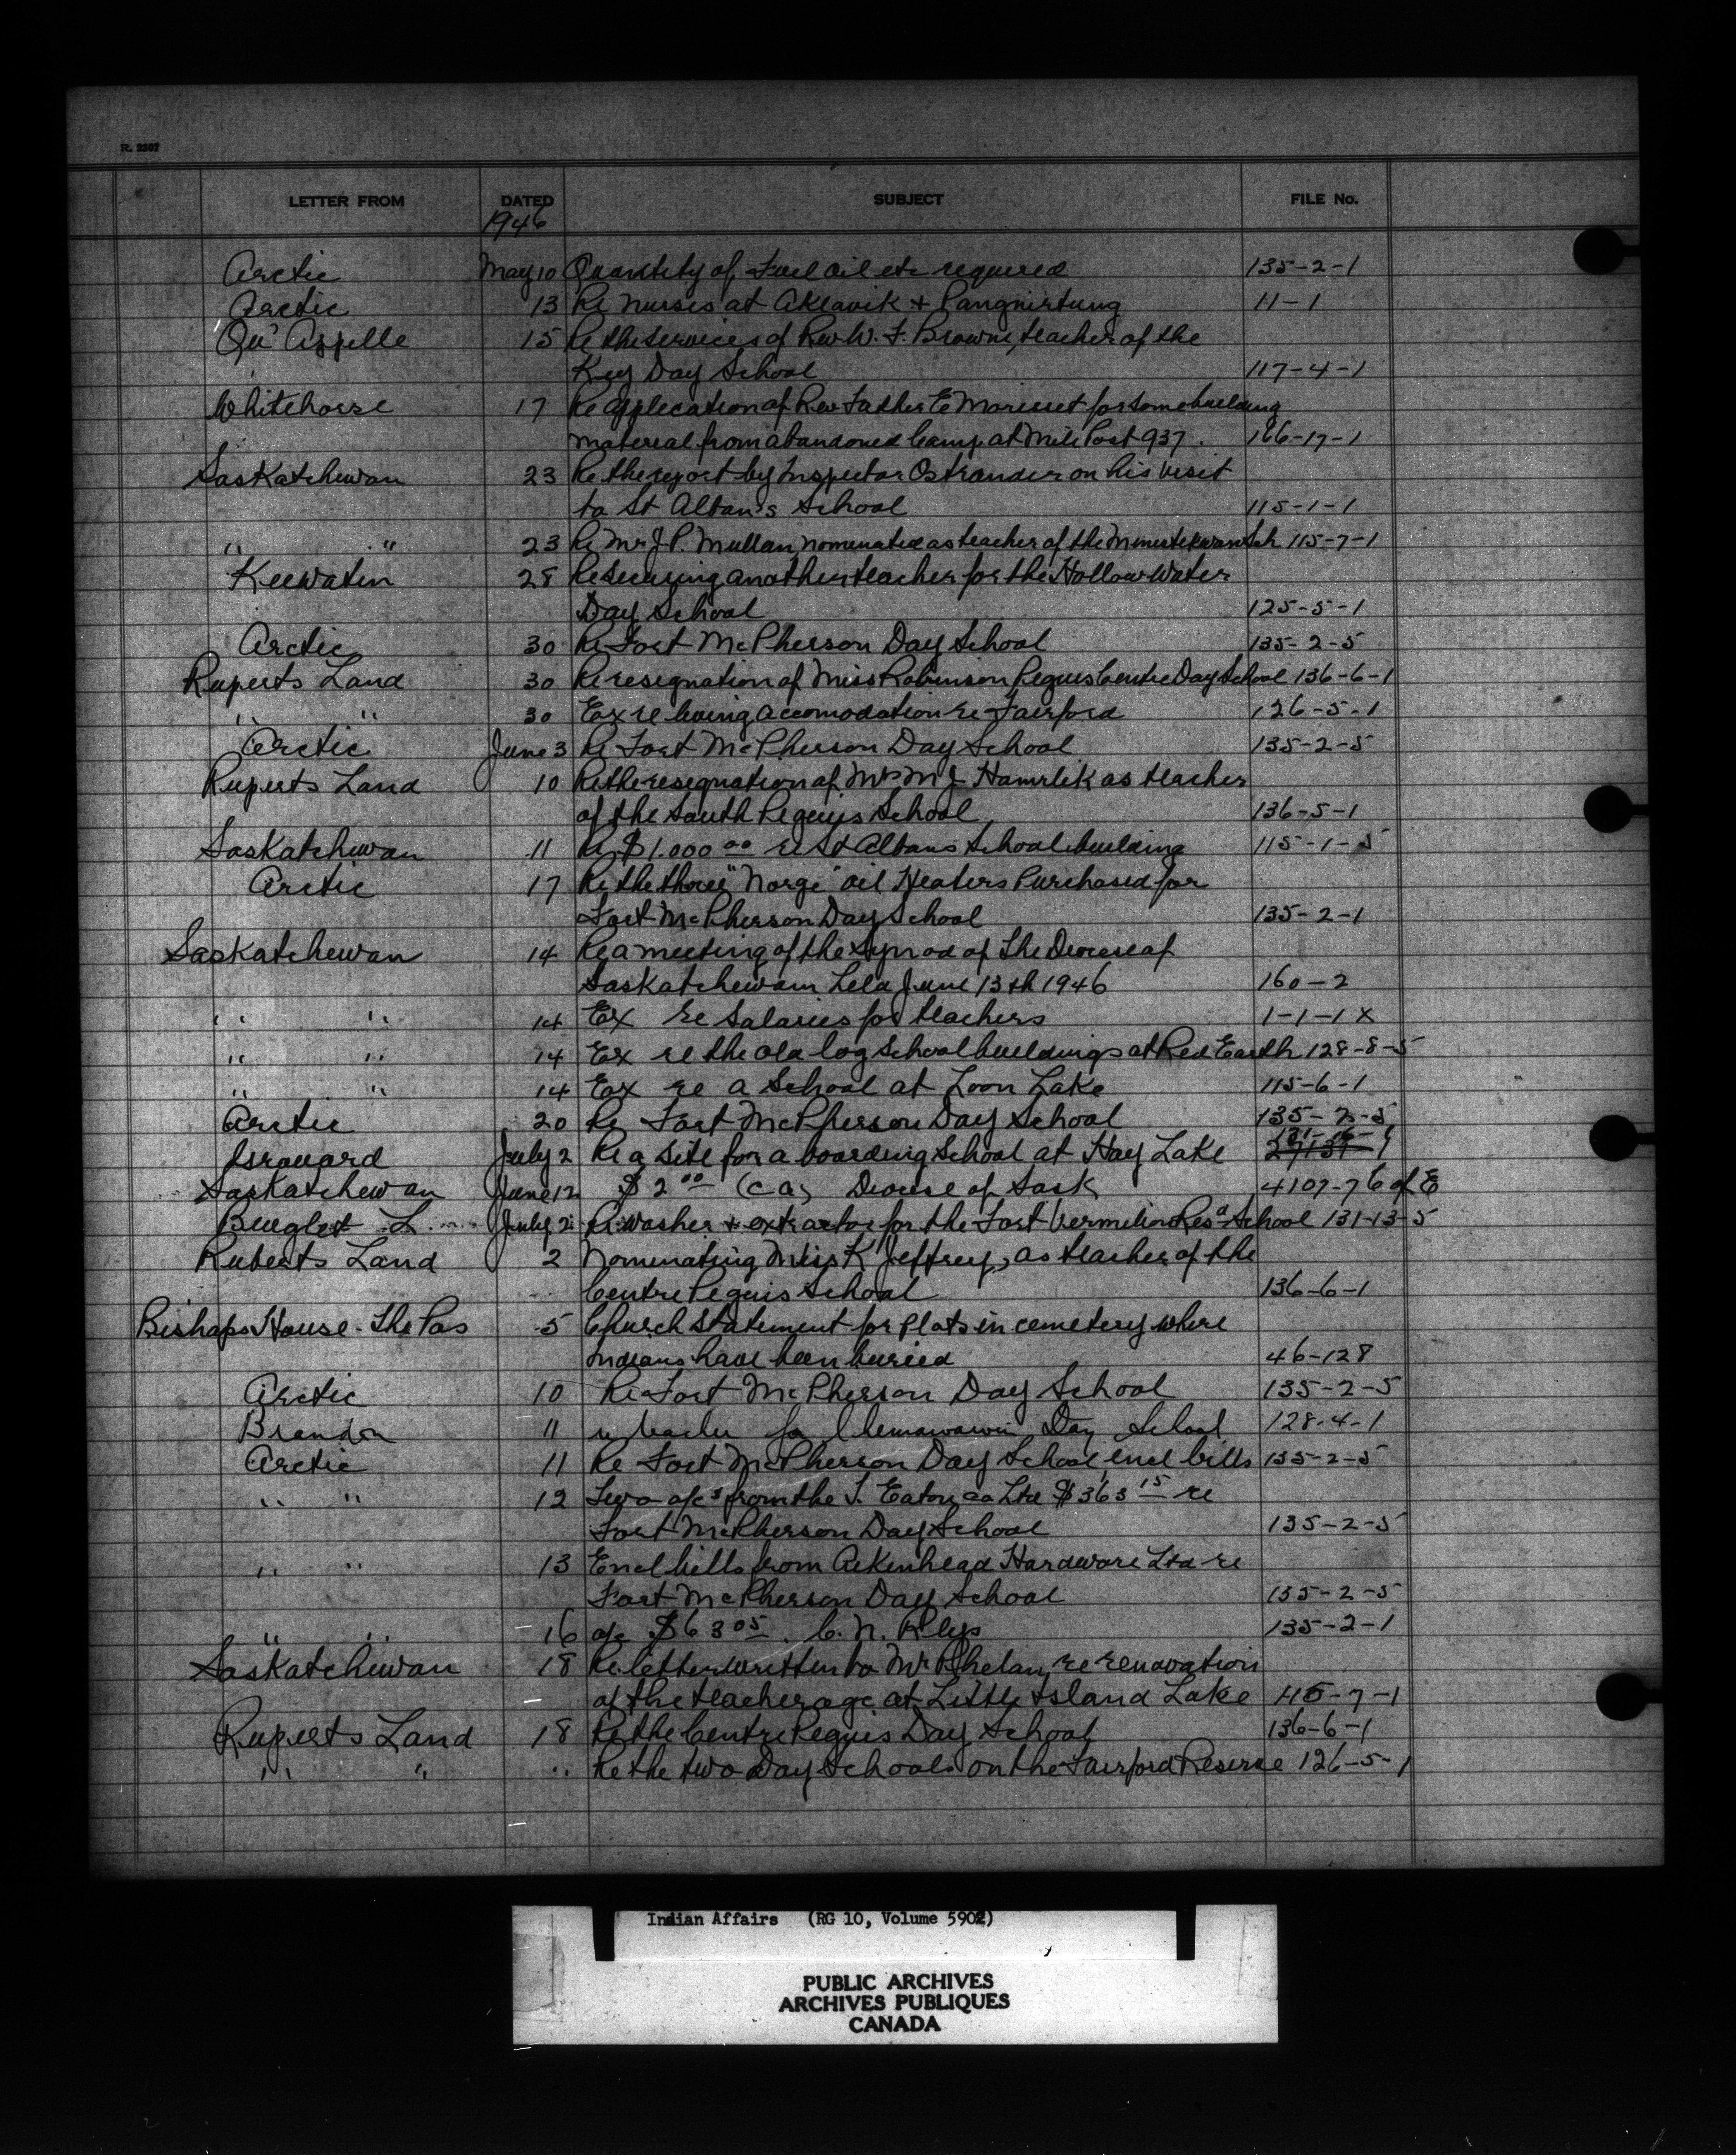 R. 2307
LETTER FROM DATED SUBJECT FILE No.
1946
Arctic May 10 Quantity of Fuel oil etc required 135-2-1
Arctic 13 Re Nurses at Aklavik + Pangnirtung 11-1
Qu'Appelle 15 Re the services of Rev W. F. Browne, teacher of the
Key Day School 117-4-1
Whitehorse 17 Re application of Rev Father E Morisset for some building
material from abandoned camp at Mile Post 937. 166-17-1
Saskatchewan 23 Re the report by Inspector Ostrander on his visit
to St Alban's School 115-1-1
" " 23 Re Mr J P. Mullan, nominated as teacher of the Sch 115-7-1
Keewatin 28 Re securing another teacher for the Hollow Water
Day School 125-5-1
Arctic 30 Re Fort McPherson Day School 135-2-5
Ruperts Land 30 Re resignation of Miss Robinson Peguis Centre Day School 136-6-1
" " 30 Ex re living accomodation re Fairford 126-5-1
Arctic June 3 Re Fort McPherson Day School 135-2-5
Ruperts Land 10 Re the resignation of Mrs M J as teacher
of the South Peguis School 136-5-1
Saskatchewan 11 Re $1.000 00 re St Albans School building 115-1-5
Arctic 17 Re the three "Norge" oil Heaters Purchased for
Fort McPherson Day School 135-2-1
Saskatchewan 14 Re a meeting of the Synod of The Diocese of
Saskatchewan held June 13th 1946 160-2
" " 14 Ex re Salaries for teachers 1-1-1 X
" " 14 Ex re the old log school buildings at Red Earth 128-8-5
" " 14 Ex re a School at Loon Lake 115-6-1
Arctic 20 Re Fort McPherson Day School 135-2-5
Grouard July 2 Re a site for a boarding School at Hay Lake
Saskatchewan June 12 $2 00 (ca) Diocese of Sask 4107-7 E of E
L. July 2 Re washer + extractor for the Fort Vermilion Resd School 131-13-5
Ruberts Land 2 Nominating Miss K Jeffrey, as teacher of the
Centre Peguis School 136-6-1
Bishops House - The Pas 5 Church Statement for Plots in cemetery where
Indians have been buried 46-128
Arctic 10 Re Fort McPherson Day School 135-2-5
Brandon 11 re teacher for Chemawawin Day School 128-4-1
Arctic 11 Re Fort McPherson Day School, encl bills 135-2-5
" " 12 Two a/cs from the T. Eaton co Ltd $363 15 re
Fort McPherson Day School 135-2-5
" " 13 Encl bills from Aikenhead Hardware Ltd re
Fort McPherson Day School 135-2-5
" " 16 a/c $63 05. C. N. Rlys 135-2-1
Saskatchewan 18 Re letter written to Mr Phelan, re renovation
of the teacherage at Little Island Lake 115-7-1
Ruperts Land 18 Re the Centre Peguis Day School 136-6-1
" " " Re the two Day Schools on the Fairford Reserve 126-5-1
Indian Affairs (RG 10, Volume 5902)
PUBLIC ARCHIVES
ARCHIVES PUBLIQUES
CANADA